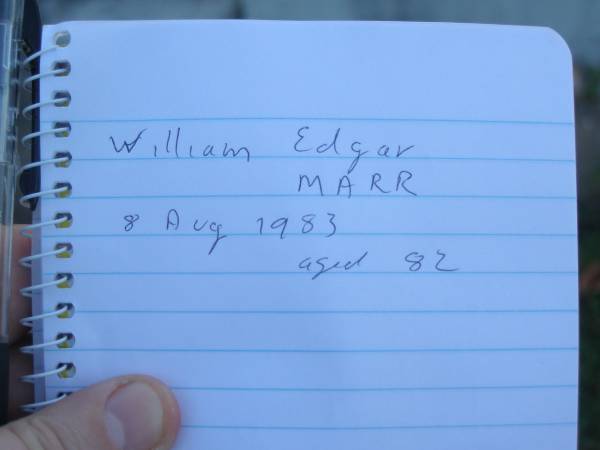 William Edgar
MARR
8 Aug 1983
aged 82